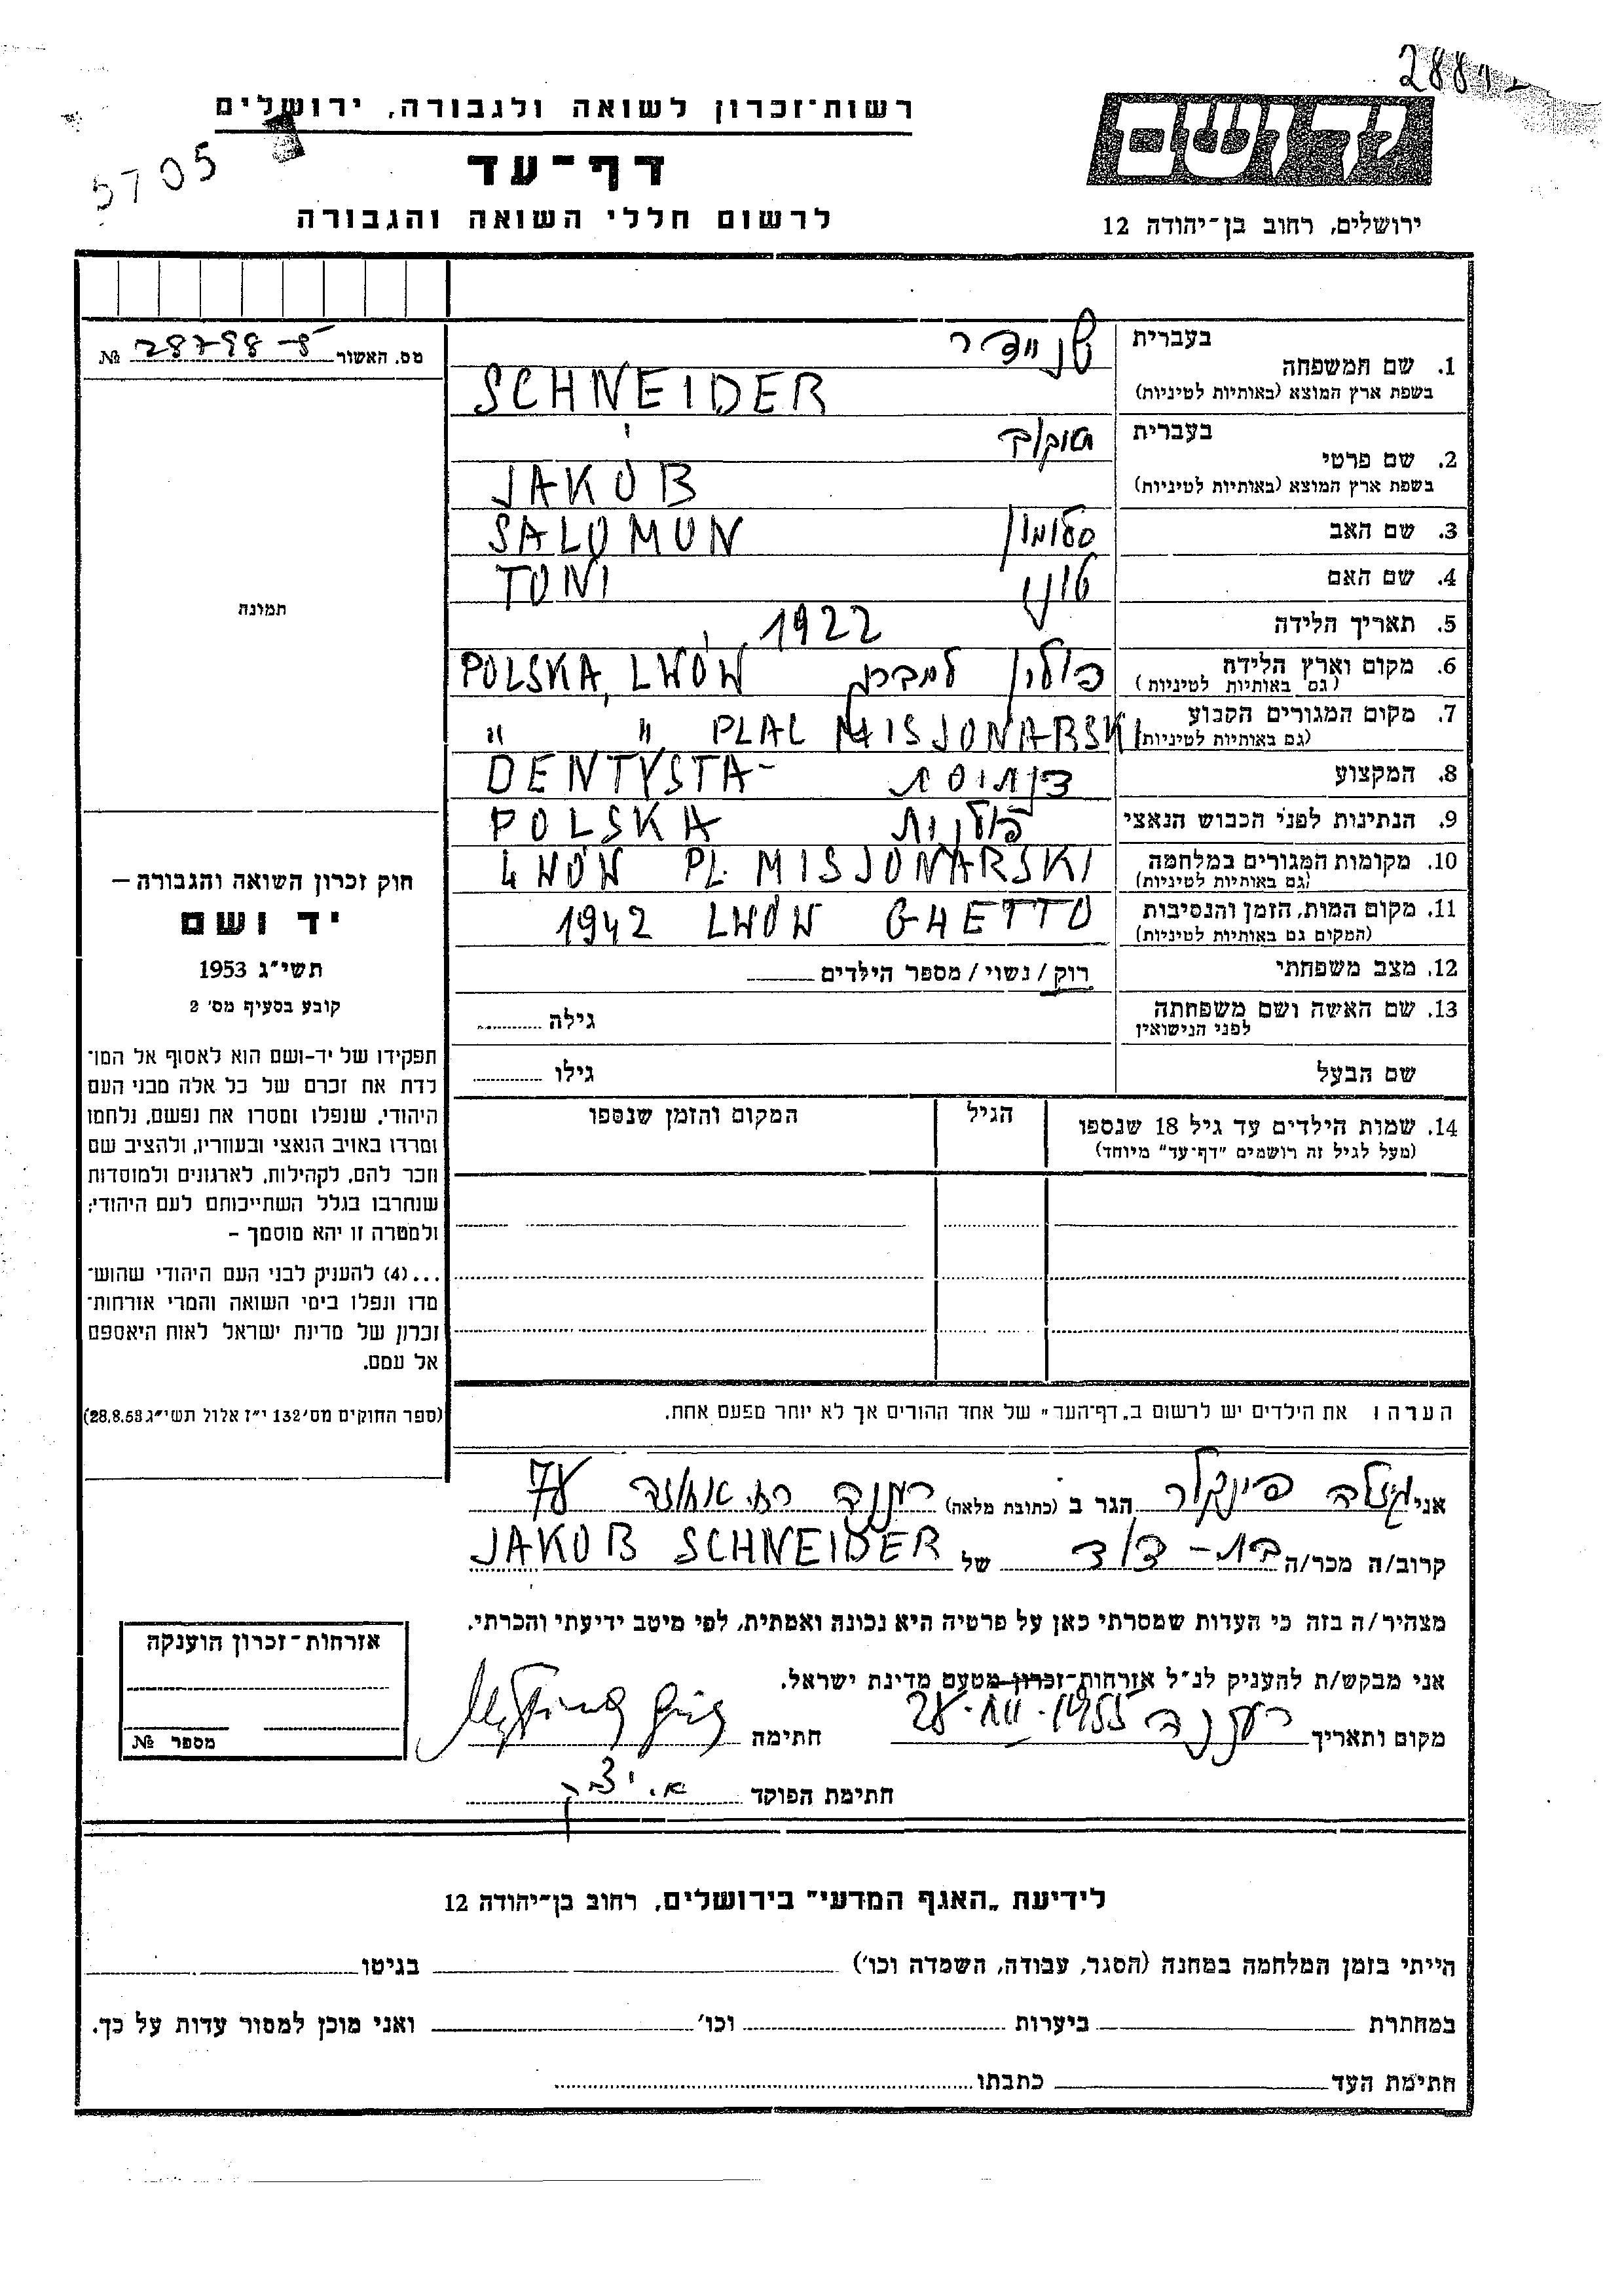 רשות־זכרון לשואה ולגבורה, ירושלים
5705
דף־עד
לרשום חללי השואה והגבורה
ירושלים, רחוב בן־יהודה 12
מס. האשור 28798-5 №
בעברית שניידר
1. שם המשפחה
בשפת ארץ המוצא (באותיות לטיניות) SCHNEIDER
בעברית
2. שם פרטי
בשפת ארץ המוצא (באותיות לטיניות) JAKÓB
3. שם האב סלומון SALOMON
4. שם האם טוני TONI
5. תאריך הלידה 1922
6. מקום וארץ הלידה פולין למברג POLSKA, LWÓW
(גם באותיות לטיניות)
7. מקום המגורים הקבוע " " PLAC MISJONARSKI
(גם באותיות לטיניות)
8. המקצוע דנתיסת DENTYSTA-
9. הנתינות לפני הכבוש הנאצי פולנית POLSKA
10. מקומות המגורים במלחמה LWÓW PL. MISJONARSKI
(גם באותיות לטיניות)
11. מקום המות, הזמן והנסיבות 1942 LWÓW GHETTO
(המקום גם באותיות לטיניות)
12. מצב משפחתי רוק / נשוי / מספר הילדים
13. שם האשה ושם משפחתה גילה
לפני הנישואין
שם הבעל גילו
14. שמות הילדים עד גיל 18 שנספו הגיל המקום והזמן שנספו
(מעל לגיל זה רושמים "דף־עד" מיוחד)
תמונה
חוק זכרון השואה והגבורה –
יד ושם
תשי״ג 1953
קובע בסעיף מס׳ 2
תפקידו של יד-ושם הוא לאסוף אל המו־
לדת את זכרם של כל אלה מבני העם
היהודי, שנפלו ומסרו את נפשם, נלחמו
ומרדו באויב הנאצי ובעוזריו, ולהציב שם
וזכר להם, לקהילות, לארגונים ולמוסדות
שנחרבו בגלל השתייכותם לעם היהודי;
ולמטרה זו יהא מוסמך –
...(4) להעניק לבני העם היהודי שהוש־
מדו ונפלו בימי השואה והמרי אזרחות־
זכרון של מדינת ישראל לאות היאספם
אל עמם.
(ספר החוקים מס׳ 132 י״ז אלול תשי״ג 28.8.53)
הערה: את הילדים יש לרשום ב„דף־העד" של אחד ההורים אך לא יותר מפעם אחת.
אני גיזלה פינקלר הגר ב (כתובת מלאה) רעננה רח. אחוזה 78
קרוב/ה מכר/ה בת-דוד של JAKÓB SCHNEIDER
מצהיר/ה בזה כי העדות שמסרתי כאן על פרטיה היא נכונה ואמתית, לפי מיטב ידיעתי והכרתי.
אני מבקש/ת להעניק לנ״ל אזרחות־זכרון מטעם מדינת ישראל.
מקום ותאריך רעננה 28.XII.1955 חתימה
חתימת הפוקד
אזרחות־זכרון הוענקה
מספר №
לידיעת „האגף המדעי" בירושלים, רחוב בן־יהודה 12
הייתי בזמן המלחמה במחנה (הסגר, עבודה, השמדה וכו׳) בגיטו
במחתרת ביערות וכו׳ ואני מוכן למסור עדות על כך.
חתימת העד כתבתו